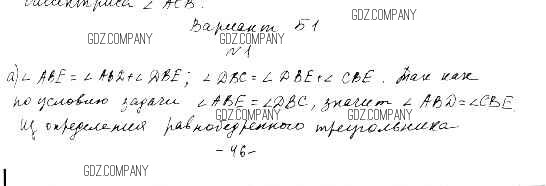 биссектриса ∠ ACB.
GDZ.COMPANY
Вариант Б1
GDZ.COMPANY GDZ.COMPANY
N1
GDZ.COMPANY
а) ∠ ABE = ∠ ABD + ∠ DBE; ∠ DBC = ∠ DBE + ∠ CBE. Так как
по условию задачи ∠ ABE = ∠ DBC, значит ∠ ABD = ∠ CBE.
GDZ.COMPANY GDZ.COMPANY
Из определения равнобедренного треугольника
- 46 -
GDZ.COMPANY